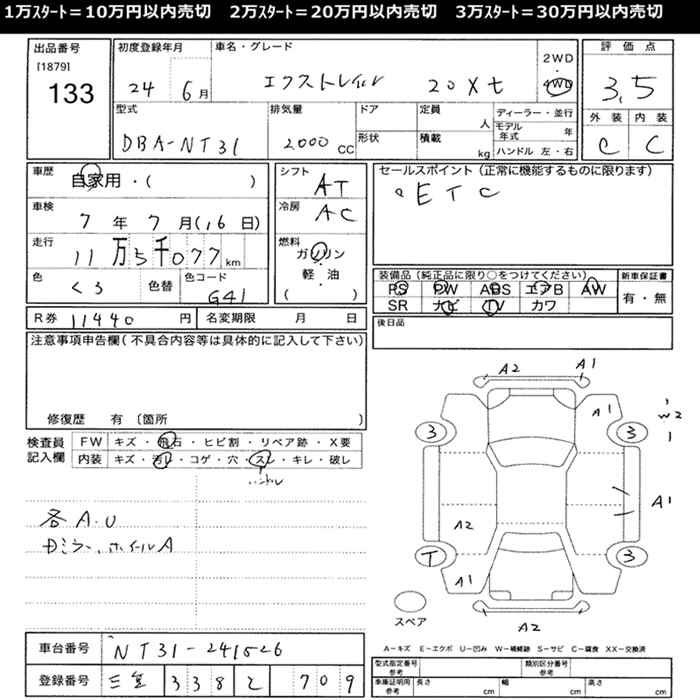 1万スタート=10万円以内売切　2万スタート=20万円以内売切　3万スタート=30万円以内売切
出品番号 [1879] 133
初度登録年月 24 6月
車名・グレード エクストレイル 20Xt
2WD 4WD
評価点 3.5
外装 内装 C C
型式 DBA-NT31
排気量 2000 CC
ドア 形状
定員 人 積載 kg
ディーラー・並行
モデル年式 年
ハンドル 左・右
車歴 自家用・( )
車検 7年7月(16日)
走行 11万5千077km
色 くろ 色替 色コード G41
シフト AT
冷房 AC
燃料 ガソリン・軽・油 ( )
セールスポイント(正常に機能するものに限ります)
ETC
装備品(純正品に限り○をつけてください)
PS PW ABS エアB AW
SR ナビ TV カワ
新車保証書 有・無
R券 11440円 名変期限 月 日
後日品
注意事項申告欄(不具合内容等は具体的に記入して下さい)
修復歴 有 〔箇所 〕
検査員記入欄
FW キズ・飛石・ヒビ割・リペア跡・X要
内装 キズ・汚れ・コゲ・穴・スレ・キレ・破レ
各A.U
ホイルA
A2 A1
A1
W2
3 3
A1
A2
T 3
A1
スペア
A2
A-キズ E-エクボ U-凹み W-補修跡 S-サビ C-腐食 XX-交換済
車台番号 NT31-241526
登録番号 三重 338 709
型式指定番号 参考 類別区分番号 参考
車庫証明用 参考 長さ cm 幅 cm 高さ cm